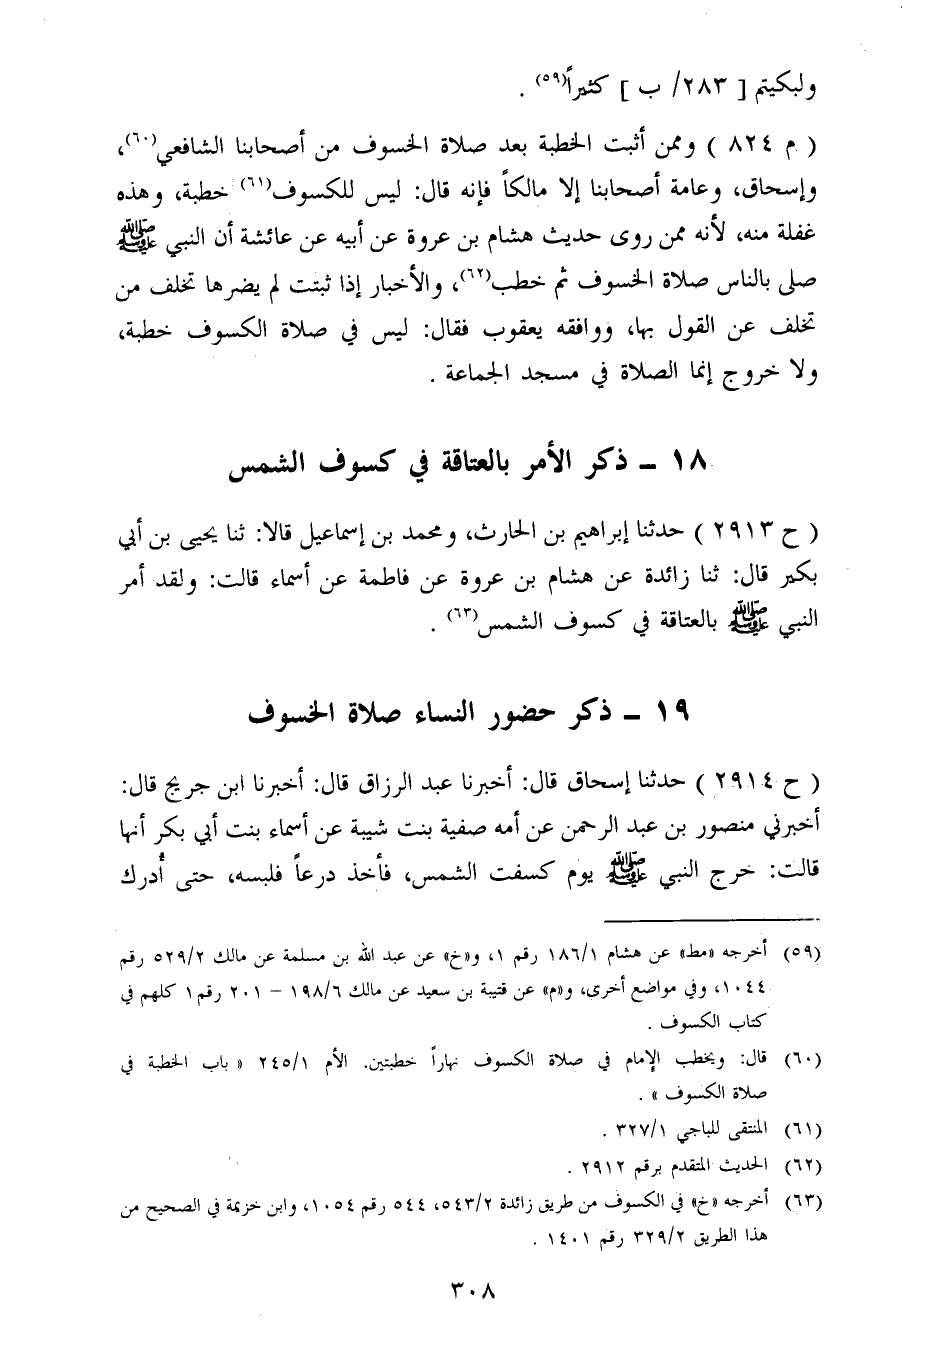 ولبكيتم [ ٢٨٣/ ب ] كثيراً(٥٩) .
( م ٨٢٤ ) وممن أثبت الخطبة بعد صلاة الخسوف من أصحابنا الشافعي(٦٠)،
وإسحاق، وعامة أصحابنا إلا مالكاً فإنه قال: ليس للكسوف(٦١) خطبة، وهذه
غفلة منه، لأنه ممن روى حديث هشام بن عروة عن أبيه عن عائشة أن النبي ﷺ
صلى بالناس صلاة الخسوف ثم خطب(٦٢)، والأخبار إذا ثبتت لم يضرها تخلف من
تخلف عن القول بها، ووافقه يعقوب فقال: ليس في صلاة الكسوف خطبة،
ولا خروج إنما الصلاة في مسجد الجماعة .
١٨ ــ ذكر الأمر بالعتاقة في كسوف الشمس
( ح ٢٩١٣ ) حدثنا إبراهيم بن الحارث، ومحمد بن إسماعيل قالا: ثنا يحيى بن أبي
بكير قال: ثنا زائدة عن هشام بن عروة عن فاطمة عن أسماء قالت: ولقد أمر
النبي ﷺ بالعتاقة في كسوف الشمس(٦٣) .
١٩ ــ ذكر حضور النساء صلاة الخسوف
( ح ٢٩١٤ ) حدثنا إسحاق قال: أخبرنا عبد الرزاق قال: أخبرنا ابن جريج قال:
أخبرني منصور بن عبد الرحمن عن أمه صفية بنت شيبة عن أسماء بنت أبي بكر أنها
قالت: خرج النبي ﷺ يوم كسفت الشمس، فأخذ درعاً فلبسه، حتى أُدرك
(٥٩) أخرجه «مط» عن هشام ١٨٦/١ رقم ١، و«خ» عن عبد الله بن مسلمة عن مالك ٥٢٩/٢ رقم
١٠٤٤، وفي مواضع أخرى، و«م» عن قتيبة بن سعيد عن مالك ١٩٨/٦ – ٢٠١ رقم ١ كلهم في
كتاب الكسوف .
(٦٠) قال: ويخطب الإمام في صلاة الكسوف نهاراً خطبتين. الأم ٢٤٥/١ « باب الخطبة في
صلاة الكسوف » .
(٦١) المنتقى للباجي ٣٢٧/١ .
(٦٢) الحديث المتقدم برقم ٢٩١٢ .
(٦٣) أخرجه «خ» في الكسوف من طريق زائدة ٥٤٣/٢، ٥٤٤ رقم ١٠٥٤، وابن خزيمة في الصحيح من
هذا الطريق ٣٢٩/٢ رقم ١٤٠١ .
٣٠٨